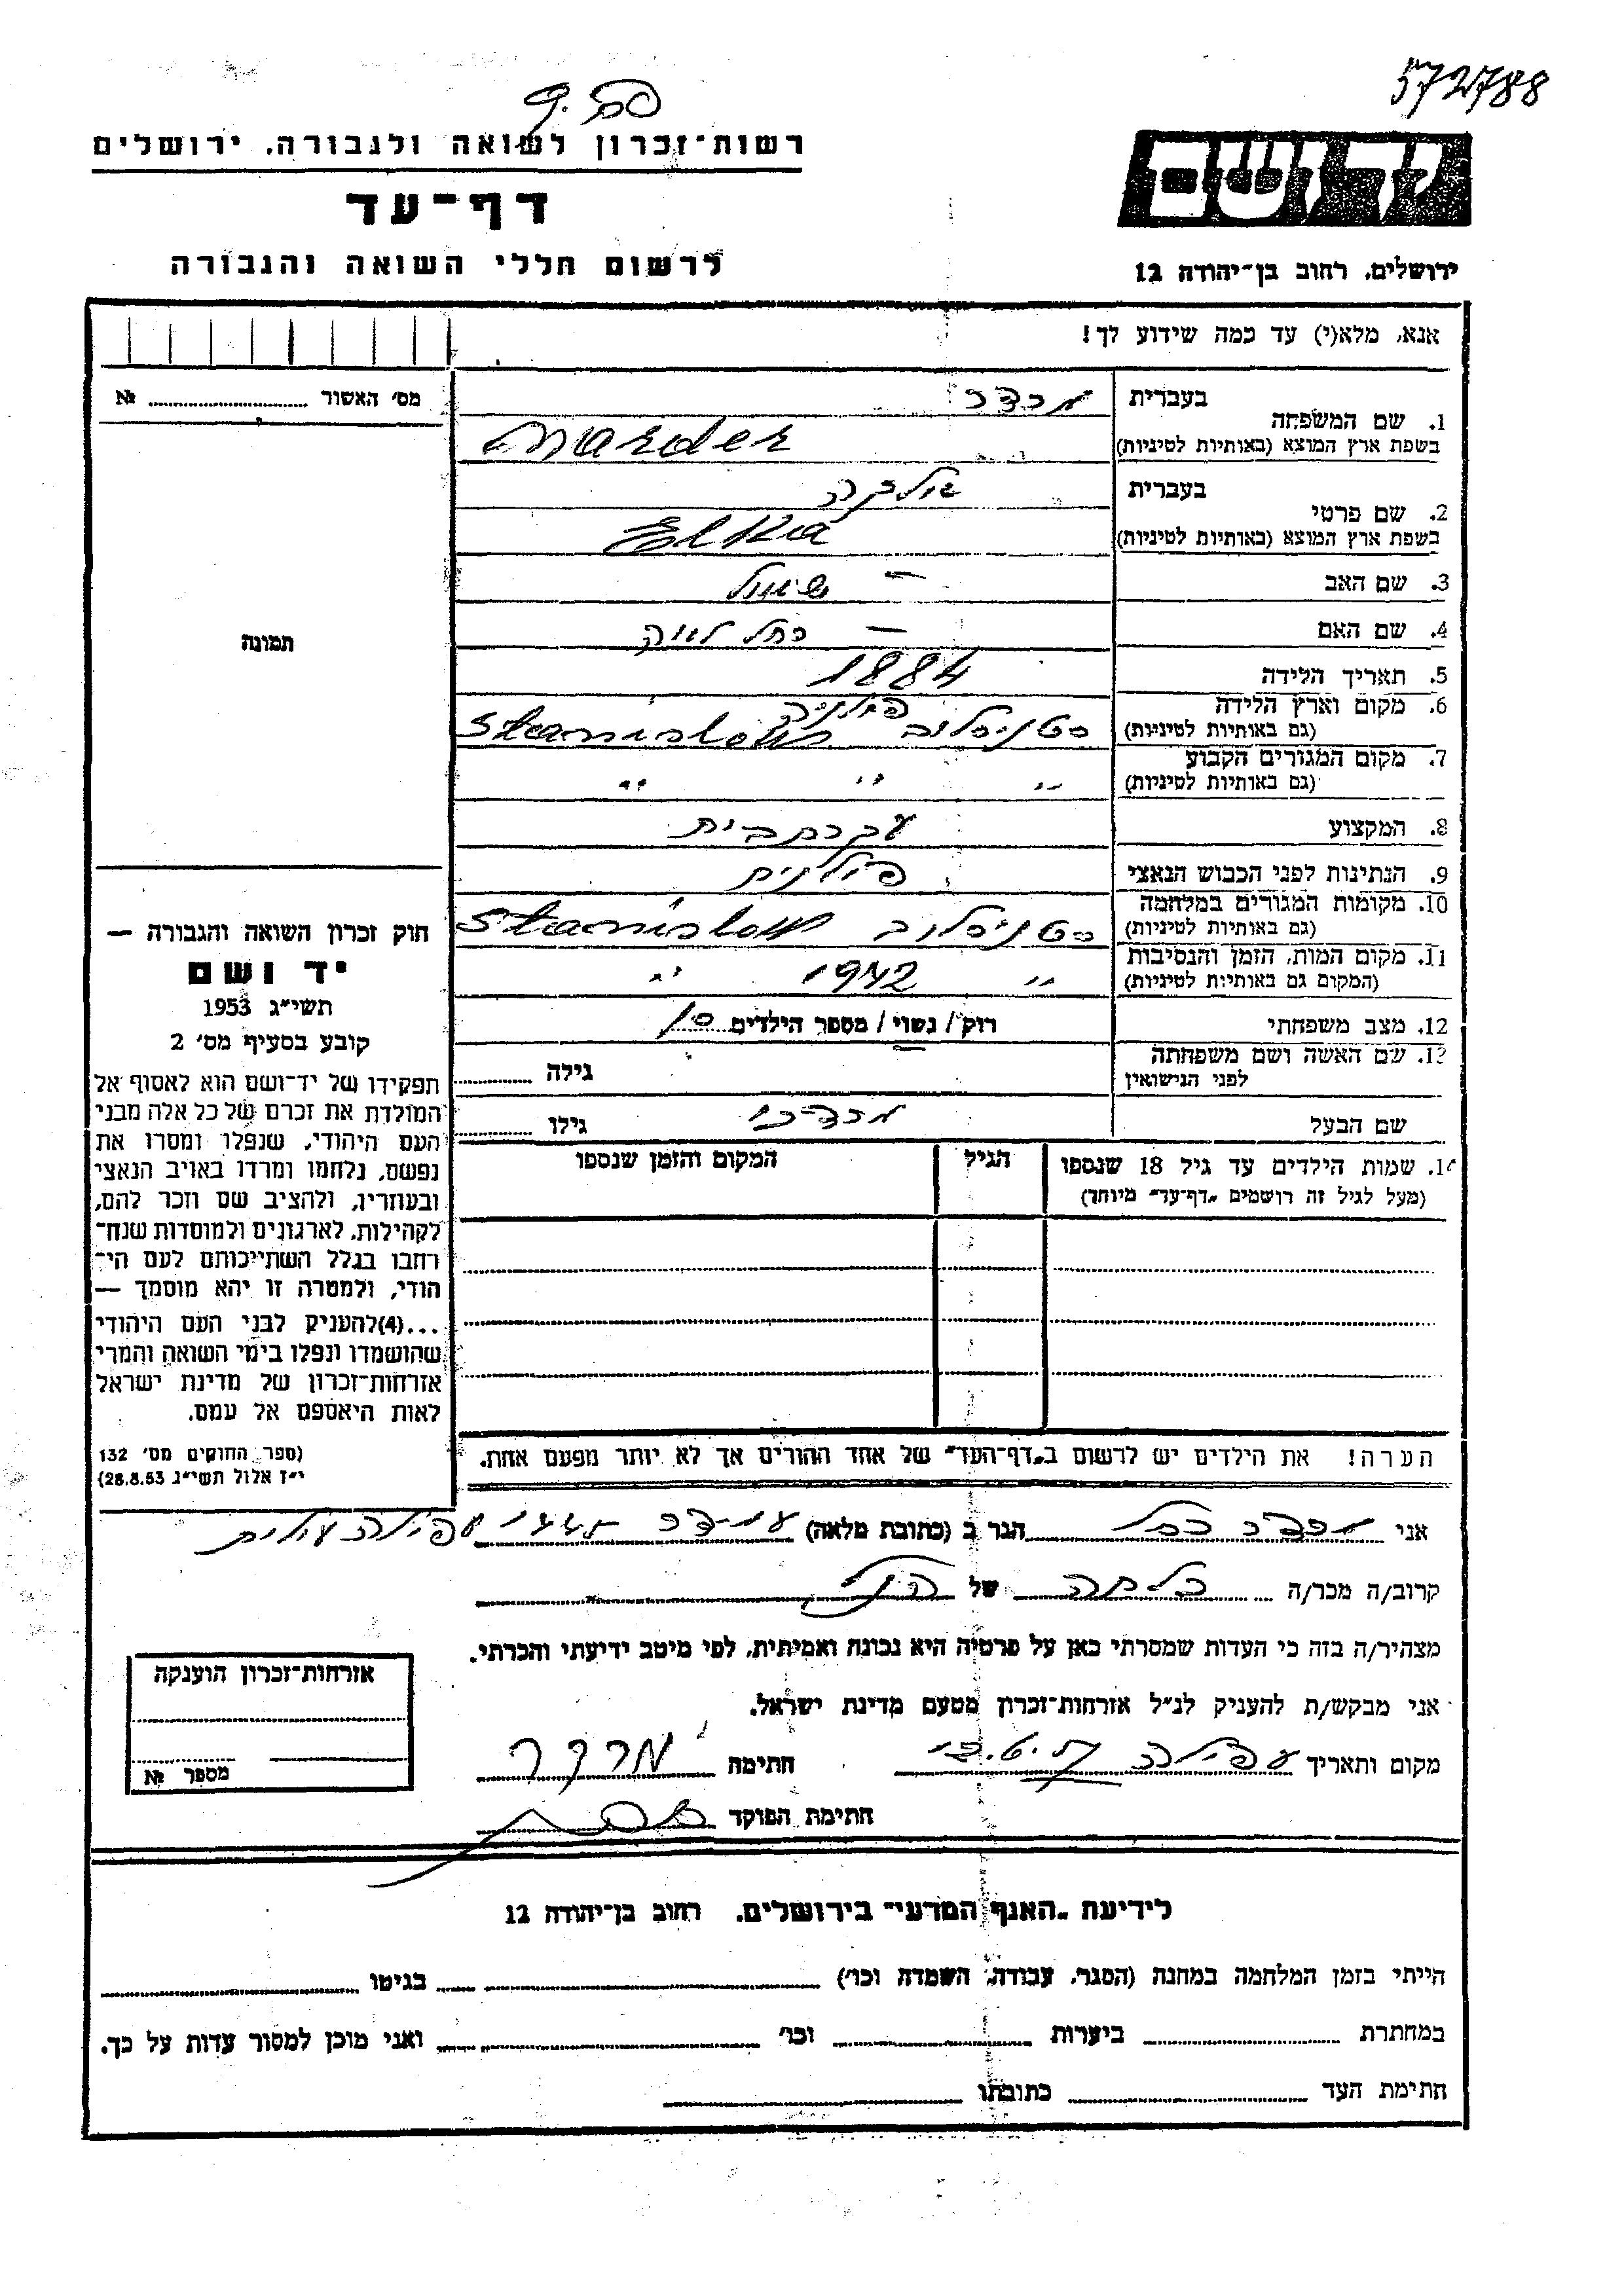 572788
רשות־זכרון לשואה ולגבורה, ירושלים
דף־עד
לרשום חללי השואה והגבורה
יד ושם
ירושלים, רחוב בן־יהודה 12
אנא, מלא(י) עד כמה שידוע לך!
מס' האשור № 
תמונה
1. שם המשפחה
בעברית מרדר
בשפת ארץ המוצא (באותיות לטיניות) Marder
2. שם פרטי
בעברית אלקה
בשפת ארץ המוצא (באותיות לטיניות) Elka
3. שם האב – שמואל
4. שם האם – רחל לאה
5. תאריך הלידה 1884
6. מקום וארץ הלידה פולניה
(גם באותיות לטיניות) סטניסלוב Stanislow
7. מקום המגורים הקבוע
(גם באותיות לטיניות) " " "
8. המקצוע עקרת בית
9. הנתינות לפני הכבוש הנאצי פולנית
10. מקומות המגורים במלחמה
(גם באותיות לטיניות) סטניסלוב Stanislow
11. מקום המות, הזמן והנסיבות
(המקום גם באותיות לטיניות) " 1942 "
12. מצב משפחתי רוק/ נשוי/ מספר הילדים
13. שם האשה ושם משפחתה
לפני הנישואין גילה
שם הבעל גילו
14. שמות הילדים עד גיל 18 שנספו הגיל המקום והזמן שנספו
(מעל לגיל זה רושמים "דף־עד" מיוחד)
הערה! את הילדים יש לרשום ב"דף־העד" של אחד ההורים אך לא יותר מפעם אחת.
חוק זכרון השואה והגבורה —
יד ושם
תשי"ג 1953
קובע בסעיף מס' 2
תפקידו של יד־ושם הוא לאסוף אל
המולדת את זכרם של כל אלה מבני
העם היהודי, שנפלו ומסרו את
נפשם, נלחמו ומרדו באויב הנאצי
ובעוזריו, ולהציב שם וזכר להם,
לקהילות, לארגונים ולמוסדות שנח־
רחבו בגלל השתייכותם לעם הי־
הודי, ולמטרה זו יהא מוסמך —
...(4)להעניק לבני העם היהודי
שהושמדו ונפלו בימי השואה והמרי
אזרחות־זכרון של מדינת ישראל
לאות היאספם אל עמם.
(ספר החוקים מס' 132
י"ז אלול תשי"ג 28.8.53)
אני מרדר רחל הגר ב (כתובת מלאה)
קרוב/ה מכר/ה כלתה של הנ"ל
מצהיר/ה בזה כי העדות שמסרתי כאן על פרטיה היא נכונה ואמיתית, לפי מיטב ידיעתי והכרתי.
אני מבקש/ת להעניק לנ"ל אזרחות־זכרון מטעם מדינת ישראל.
מקום ותאריך עפולה חתימה מרדר
חתימת הפוקד
אזרחות־זכרון הוענקה
מספר №
לידיעת "האגף המדעי" בירושלים, רחוב בן־יהודה 12
הייתי בזמן המלחמה במחנה (הסגר, עבודה, השמדה וכו') בגיטו
במחתרת ביערות וכו' ואני מוכן למסור עדות על כך.
חתימת העד כתובתו